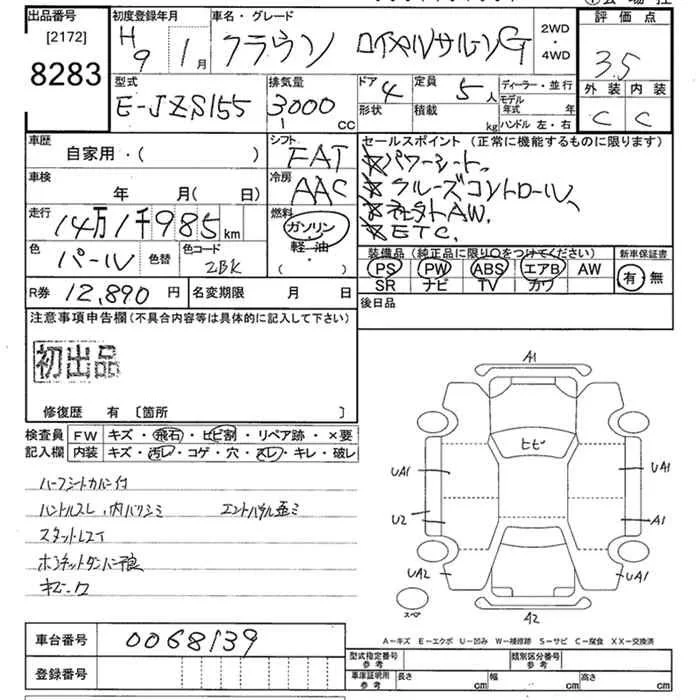 出品番号 初度登録年月 車名・グレード 評価点
[2172] H 9年 1月 クラウン ロイヤルサルーンG 2WD・4WD 3.5
8283
型式 排気量 ドア 4 定員 5人 ディーラー・並行 外装 内装
E-JZS155 3000 cc 形状 積載 kg モデル年式 年 ハンドル 左・右 C C
車歴 シフト セールスポイント (正常に機能するものに限ります)
自家用・( ) FAT ☆パワーシート、
車検 冷房 ☆クルーズコントロール、
年 月( 日) AAC ☆社外AW、
走行 燃料 ☆ETC、
14万1千985km ガソリン・軽油・( )
色 パール 色替 色コード 2BK 装備品 (純正品に限り○をつけてください) 新車保証書
PS PW ABS エアB AW 有・無
SR ナビ TV カワ
R券 12,890円 名変期限 月 日 後日品
注意事項申告欄(不具合内容等は具体的に記入して下さい)
初出品
修復歴 有 〔箇所 〕
検査員 FW キズ・飛石・ヒビ割・リペア跡・×要
記入欄 内装 キズ・汚レ・コゲ・穴・スレ・キレ・破レ
ハーフシートカバー付
ハンドルスレ、内バリシミ
スタットレスイ
A1
ヒビ
UA1 UA1
U2 A1
UA2 UA1
スペア
A2
A-キズ E-エクボ U-凹み W-補修跡 S-サビ C-腐食 XX-交換済
車台番号 0068139
登録番号
型式指定番号 参考 類別区分番号 参考
車庫証明用 参考 長さ cm 幅 cm 高さ cm